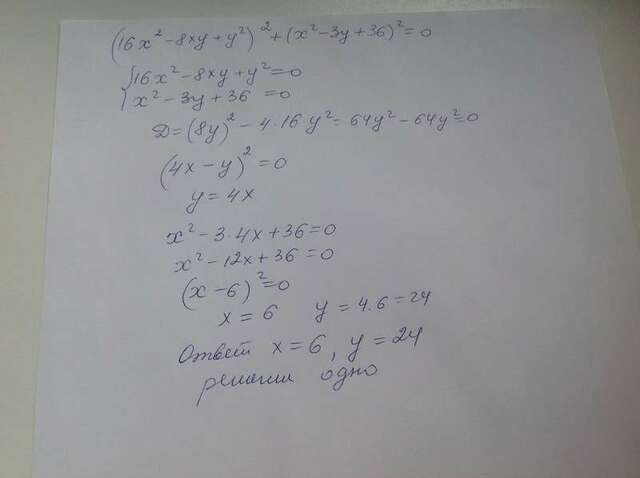 (16x² - 8xy + y²)² + (x² - 3y + 36)² = 0
{16x² - 8xy + y² = 0
x² - 3y + 36 = 0
D = (8y)² - 4·16·y² = 64y² - 64y² = 0
(4x - y)² = 0
y = 4x
x² - 3·4x + 36 = 0
x² - 12x + 36 = 0
(x - 6)² = 0
x = 6 y = 4·6 = 24
Ответ x = 6, y = 24
решения одно